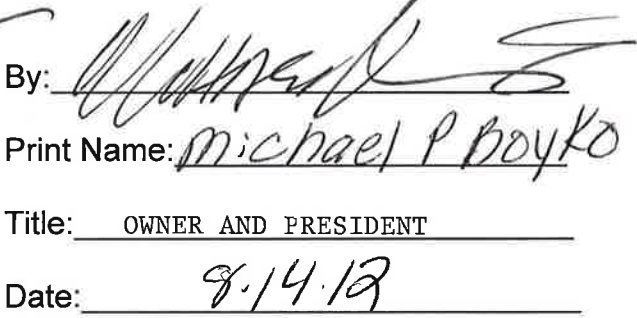 By:
Print Name: Michael P Boyko
Title: OWNER AND PRESIDENT
Date: 8.14.12